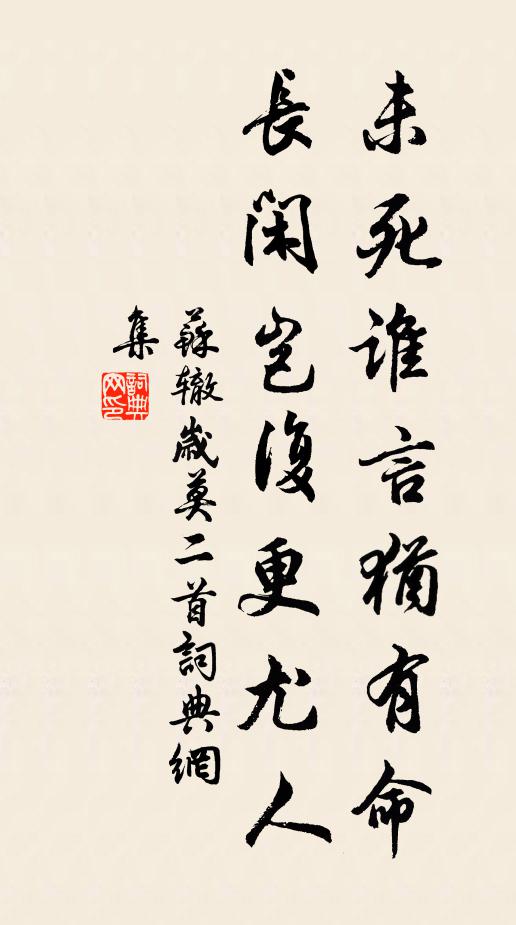 未死誰言猶有命
長閑豈復更尤人
蘇轍歲莫二首詞典網
集
詞典
网印